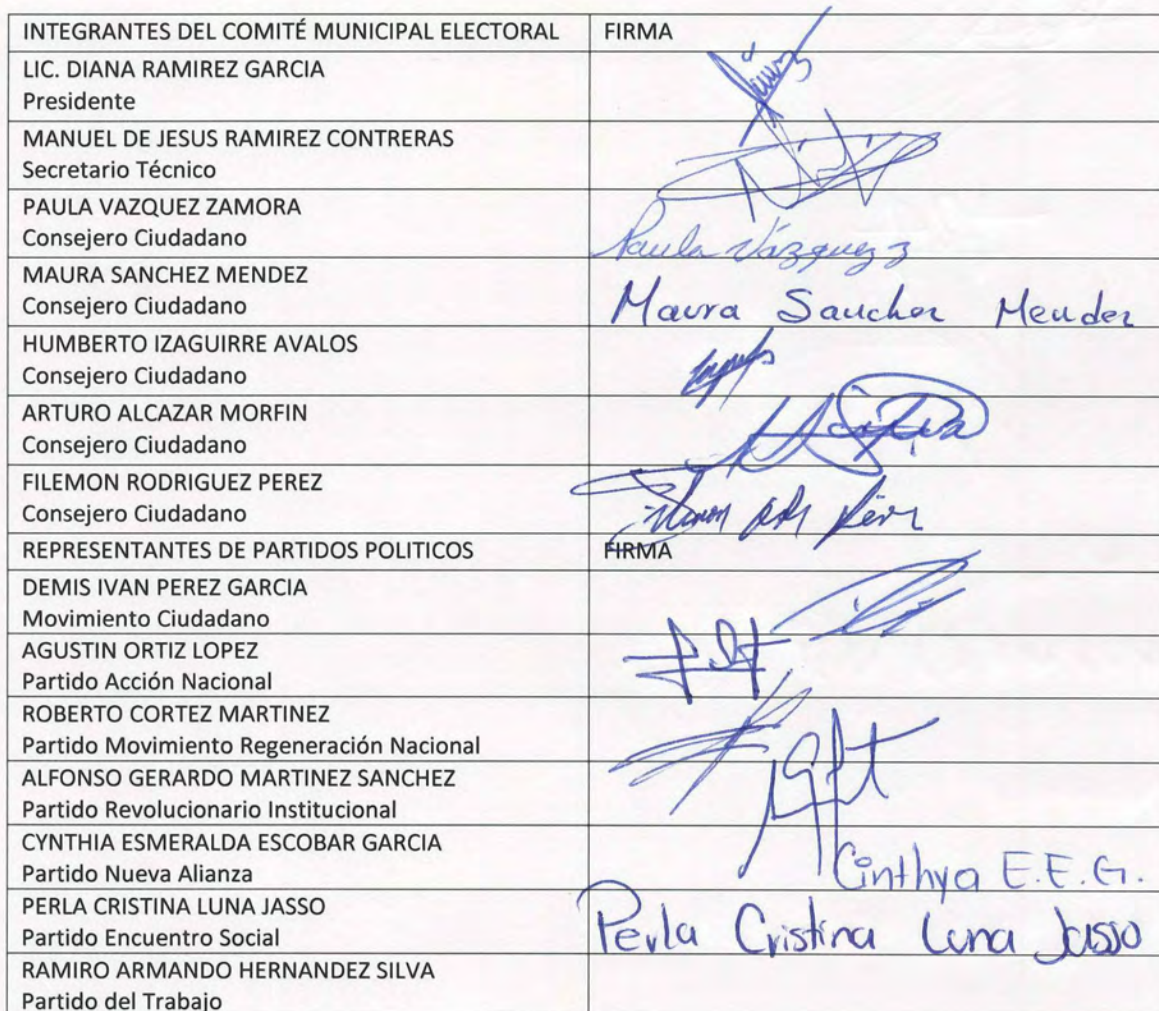 INTEGRANTES DEL COMITÉ MUNICIPAL ELECTORAL FIRMA
LIC. DIANA RAMIREZ GARCIA
Presidente
MANUEL DE JESUS RAMIREZ CONTRERAS
Secretario Técnico
PAULA VAZQUEZ ZAMORA
Consejero Ciudadano Paula Vázquez Z
MAURA SANCHEZ MENDEZ
Consejero Ciudadano Maura Sanchez Mendez
HUMBERTO IZAGUIRRE AVALOS
Consejero Ciudadano
ARTURO ALCAZAR MORFIN
Consejero Ciudadano
FILEMON RODRIGUEZ PEREZ
Consejero Ciudadano
REPRESENTANTES DE PARTIDOS POLITICOS FIRMA
DEMIS IVAN PEREZ GARCIA
Movimiento Ciudadano
AGUSTIN ORTIZ LOPEZ
Partido Acción Nacional
ROBERTO CORTEZ MARTINEZ
Partido Movimiento Regeneración Nacional
ALFONSO GERARDO MARTINEZ SANCHEZ
Partido Revolucionario Institucional
CYNTHIA ESMERALDA ESCOBAR GARCIA
Partido Nueva Alianza Cinthya E.E.G.
PERLA CRISTINA LUNA JASSO
Partido Encuentro Social Perla Cristina Luna Jasso
RAMIRO ARMANDO HERNANDEZ SILVA
Partido del Trabajo